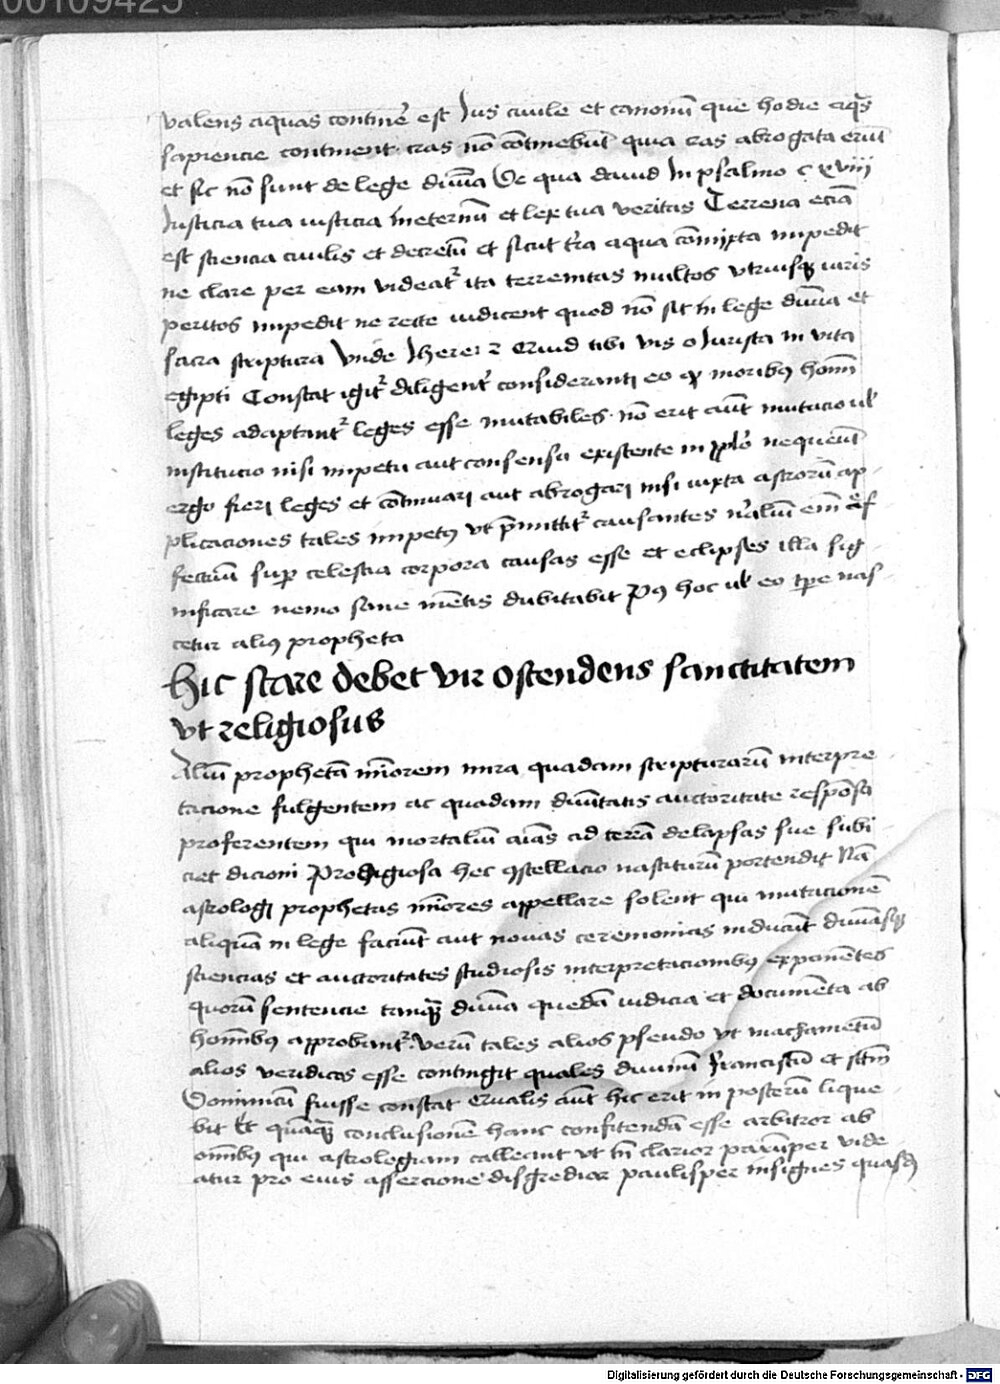 00109425
valens aquas continē est Jus ciuile et canonicū que hodie aq̄s
sapiencie continent cras nō cōtinebūt quia cras abrogata erūt
et sic nō sunt de lege diuīa De qua dauid In psalmo c xviij
Justicia tua iusticia ineternū et lex tua veritas Terrena eciā
est sciencia ciuilis et decretū et sicut tr̄a aqua cōmixta impedit
ne clare per eam videatr̄ ita terrenitas multos vtriusqȝ iuris
peritos impedit ne recte iudicent quod nō sit in lege diuīa et
sacra scriptura Vnde Jherei 2 Quid tibi vis o Jurista in vita
egipti Constat igitr̄ diligentr̄ consideranti eo qȝ moribus homī
leges adaptantr̄ leges esse mutabiles nō erit aūt mutacio ul
institucio nisi impetu aut consensu existente in pplo nequeūt
ergo fieri leges et cōtinuari aut abrogari nisi iuxta astrorū ap
plicaciones tales impetus vt p̄mittitr̄ causantes nr̄aliū em̄ eff
fectuū sup celestia corpora causas esse et eclipses illa sig
nificare nemo sane mētis dubitabit Pꝰ hoc ul eo tpe nas
cetur alius propheta
Hic stare debet vir ostendens sanctitatem
vt religiosus
Aliū prophetā mīorem mira quadam scripturarū interpre
tacione fulgentem ac quadam diuītatis auctoritate respōsa
proferentem qui mortaliū aīas ad terrā delapsas sue subi
ciet dicioni Prodigiosa hec ꝯstellacio nasciturū portendit Nā
astrologi prophetas mīores appellare solent qui mutacionē
aliquā in lege faciūt aut nouas ceremonias inducūt diuinasqȝ
sciencias et auctoritates studiosis interpretacionibus exponētes
quorū sentencie tamqȝ diuīa quedā iudicia et documēta ab
homībus approbantr̄ verū tales alios pseudo vt machametū
alios veridicos esse contingit quales diuinū franciscū et sctm̄
Dominicū fuisse constat Qualis aūt hic erit in posterū lique
bit Et quāqȝ conclusionē hanc confitendā esse arbitror ab
omībus qui astrologiam calleant vt tn̄ clarior parūper vide
atur pro eius assercione disgredior paulisper insignes quasdȝ
Digitalisierung gefördert durch die Deutsche Forschungsgemeinschaft - DFG